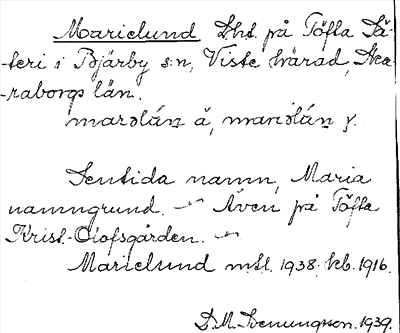 Marielund Lht. på Töfta Sä-
-teri i Bjärby s:n, Viste härad, Ska-
-raborgs län.
marəlán ä, mariəlán y.
Sentida namn, Maria
namngrund. — Även på Töfta
Krist.-Olofsgården. —
Marielund m.fl. 1938. kb. 1916.
D. M. 1939.